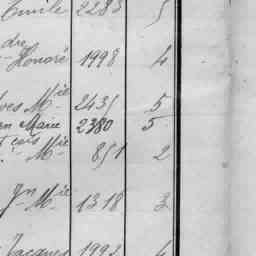 Emile 2283 5
dre
Honoré 1998 4
ves Mie 2431 5
en Marie 2380 5
çois Mie 851 2
Jn Mie 1318 3
Jacques 1992 4